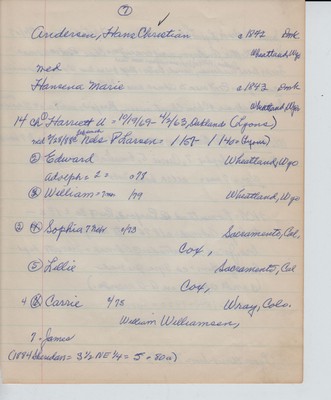 7
Andersen, Hans Christian a 1842 Dmk
Wheatland, Wyo
med
Hansena Marie a 1843 Dmk
Wheatland, Wyo
14 chd Harriett A = 10/19/69 - 4/2/63, Oakland (Lyons)
Nels P Larsen = 1/57 - 1/40 = (Lyons)
② Edward Wheatland, Wyo
Adolph = 2 = a 78
③ William = 7mos /79 Wheatland, Wyo
3 ④ Sophia 7 Nebr a/73 Sacramento, Col.
Cox,
⑤ Lillie Sacramento, Cal
Cox,
4 ⑥ Carrie a/75 Wray, Colo.
William Williamsen,
7. James
(1884 Sheridan = 3 1/2 NE 1/4 = 5 = 80 a)